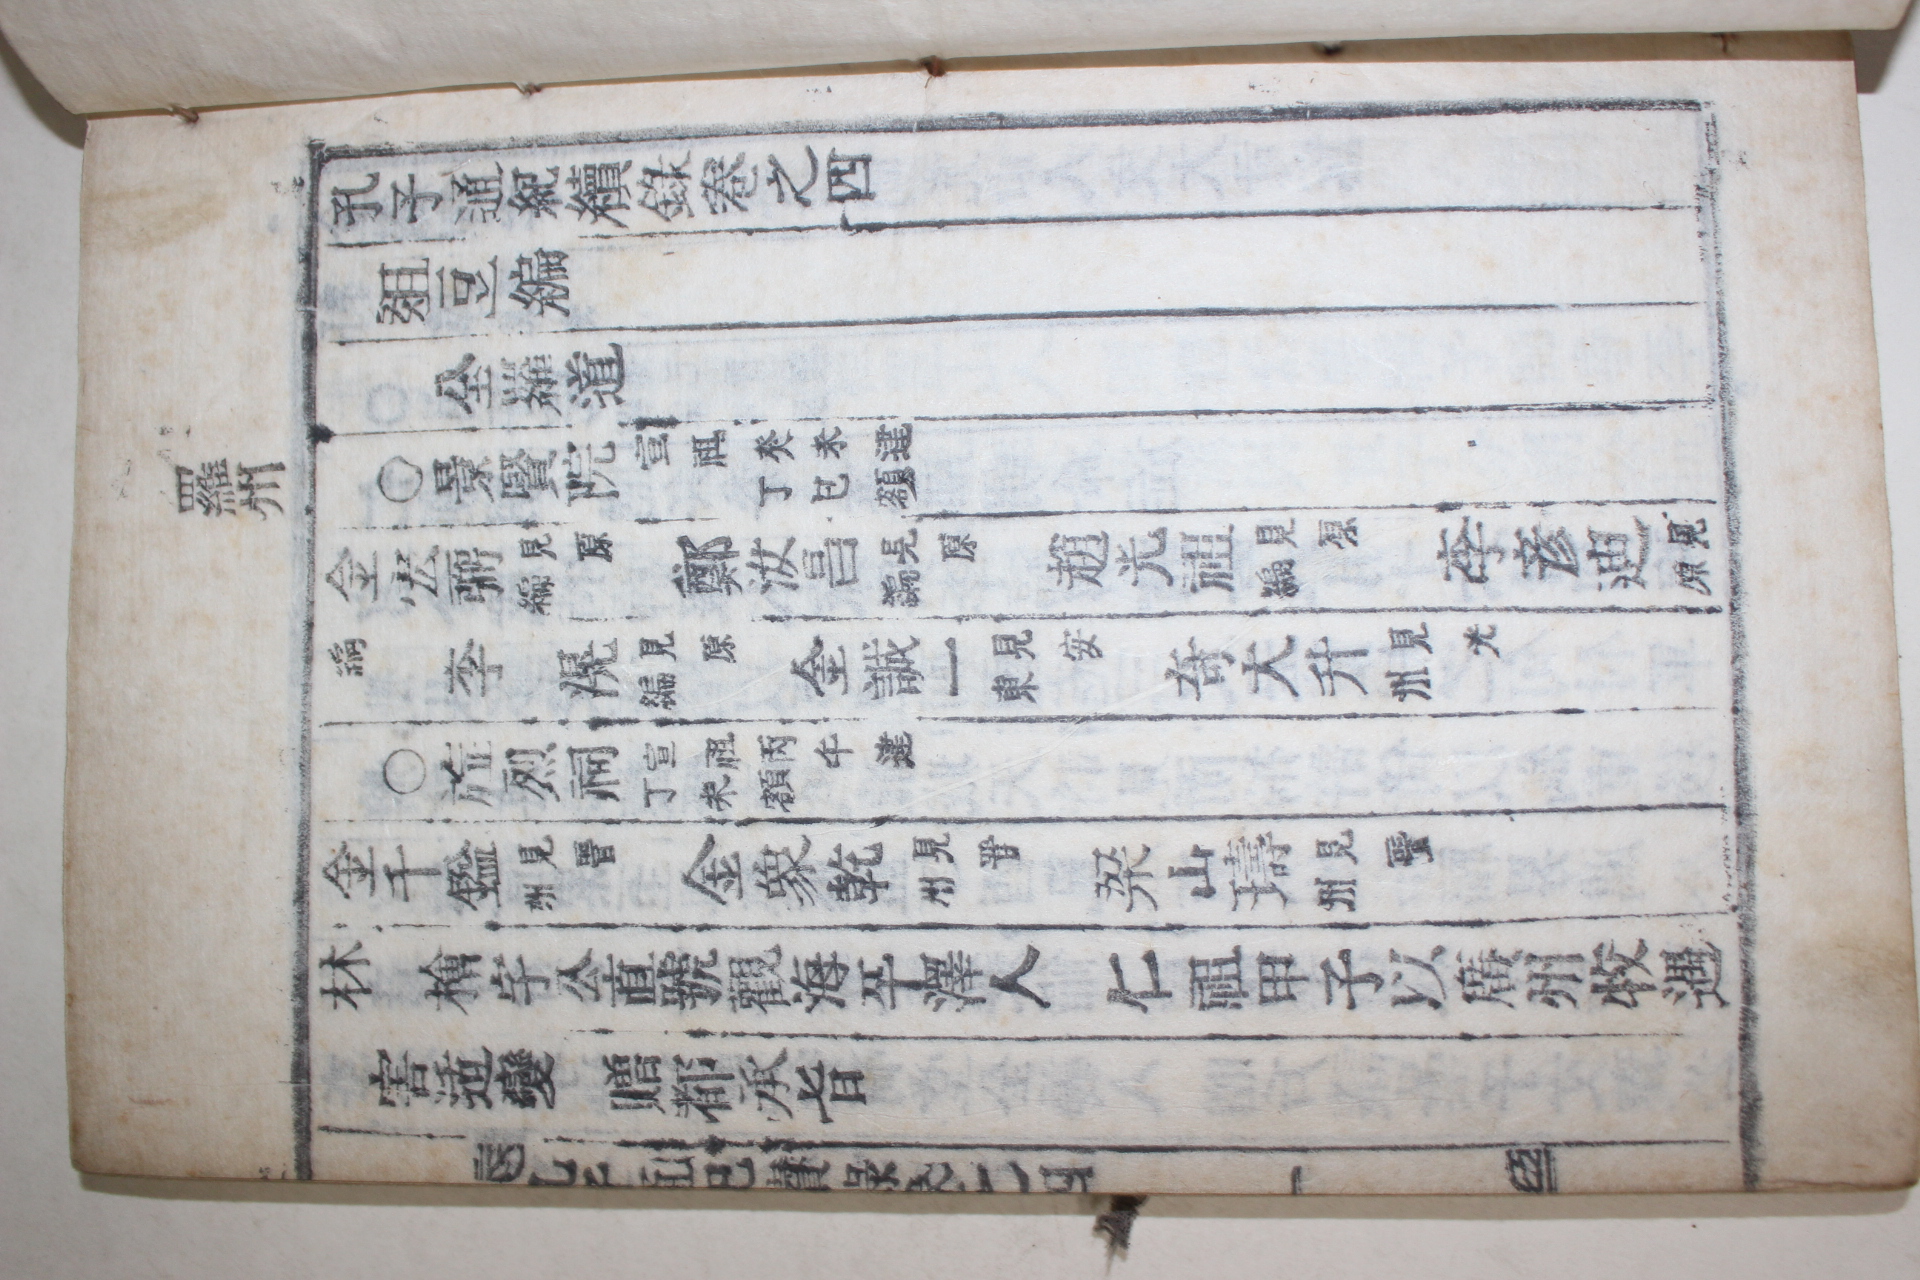 孔子通紀續錄卷之四
俎豆編
全羅道
羅州
○景賢院宣祖癸未建丁巳額
金宏弼見原編 鄭汝昌見原編 趙光祖見原編 李彥迪見原
編 李滉見原編 金誠一見安東 奇大升見光州
○旌烈祠宣祖丙午建丁未額
金千鎰見晋州 金象乾見晋州 梁山璹見晋州
林檜字公直號觀海平澤人 仁祖甲子以廣州牧遇
害适變 贈都承旨